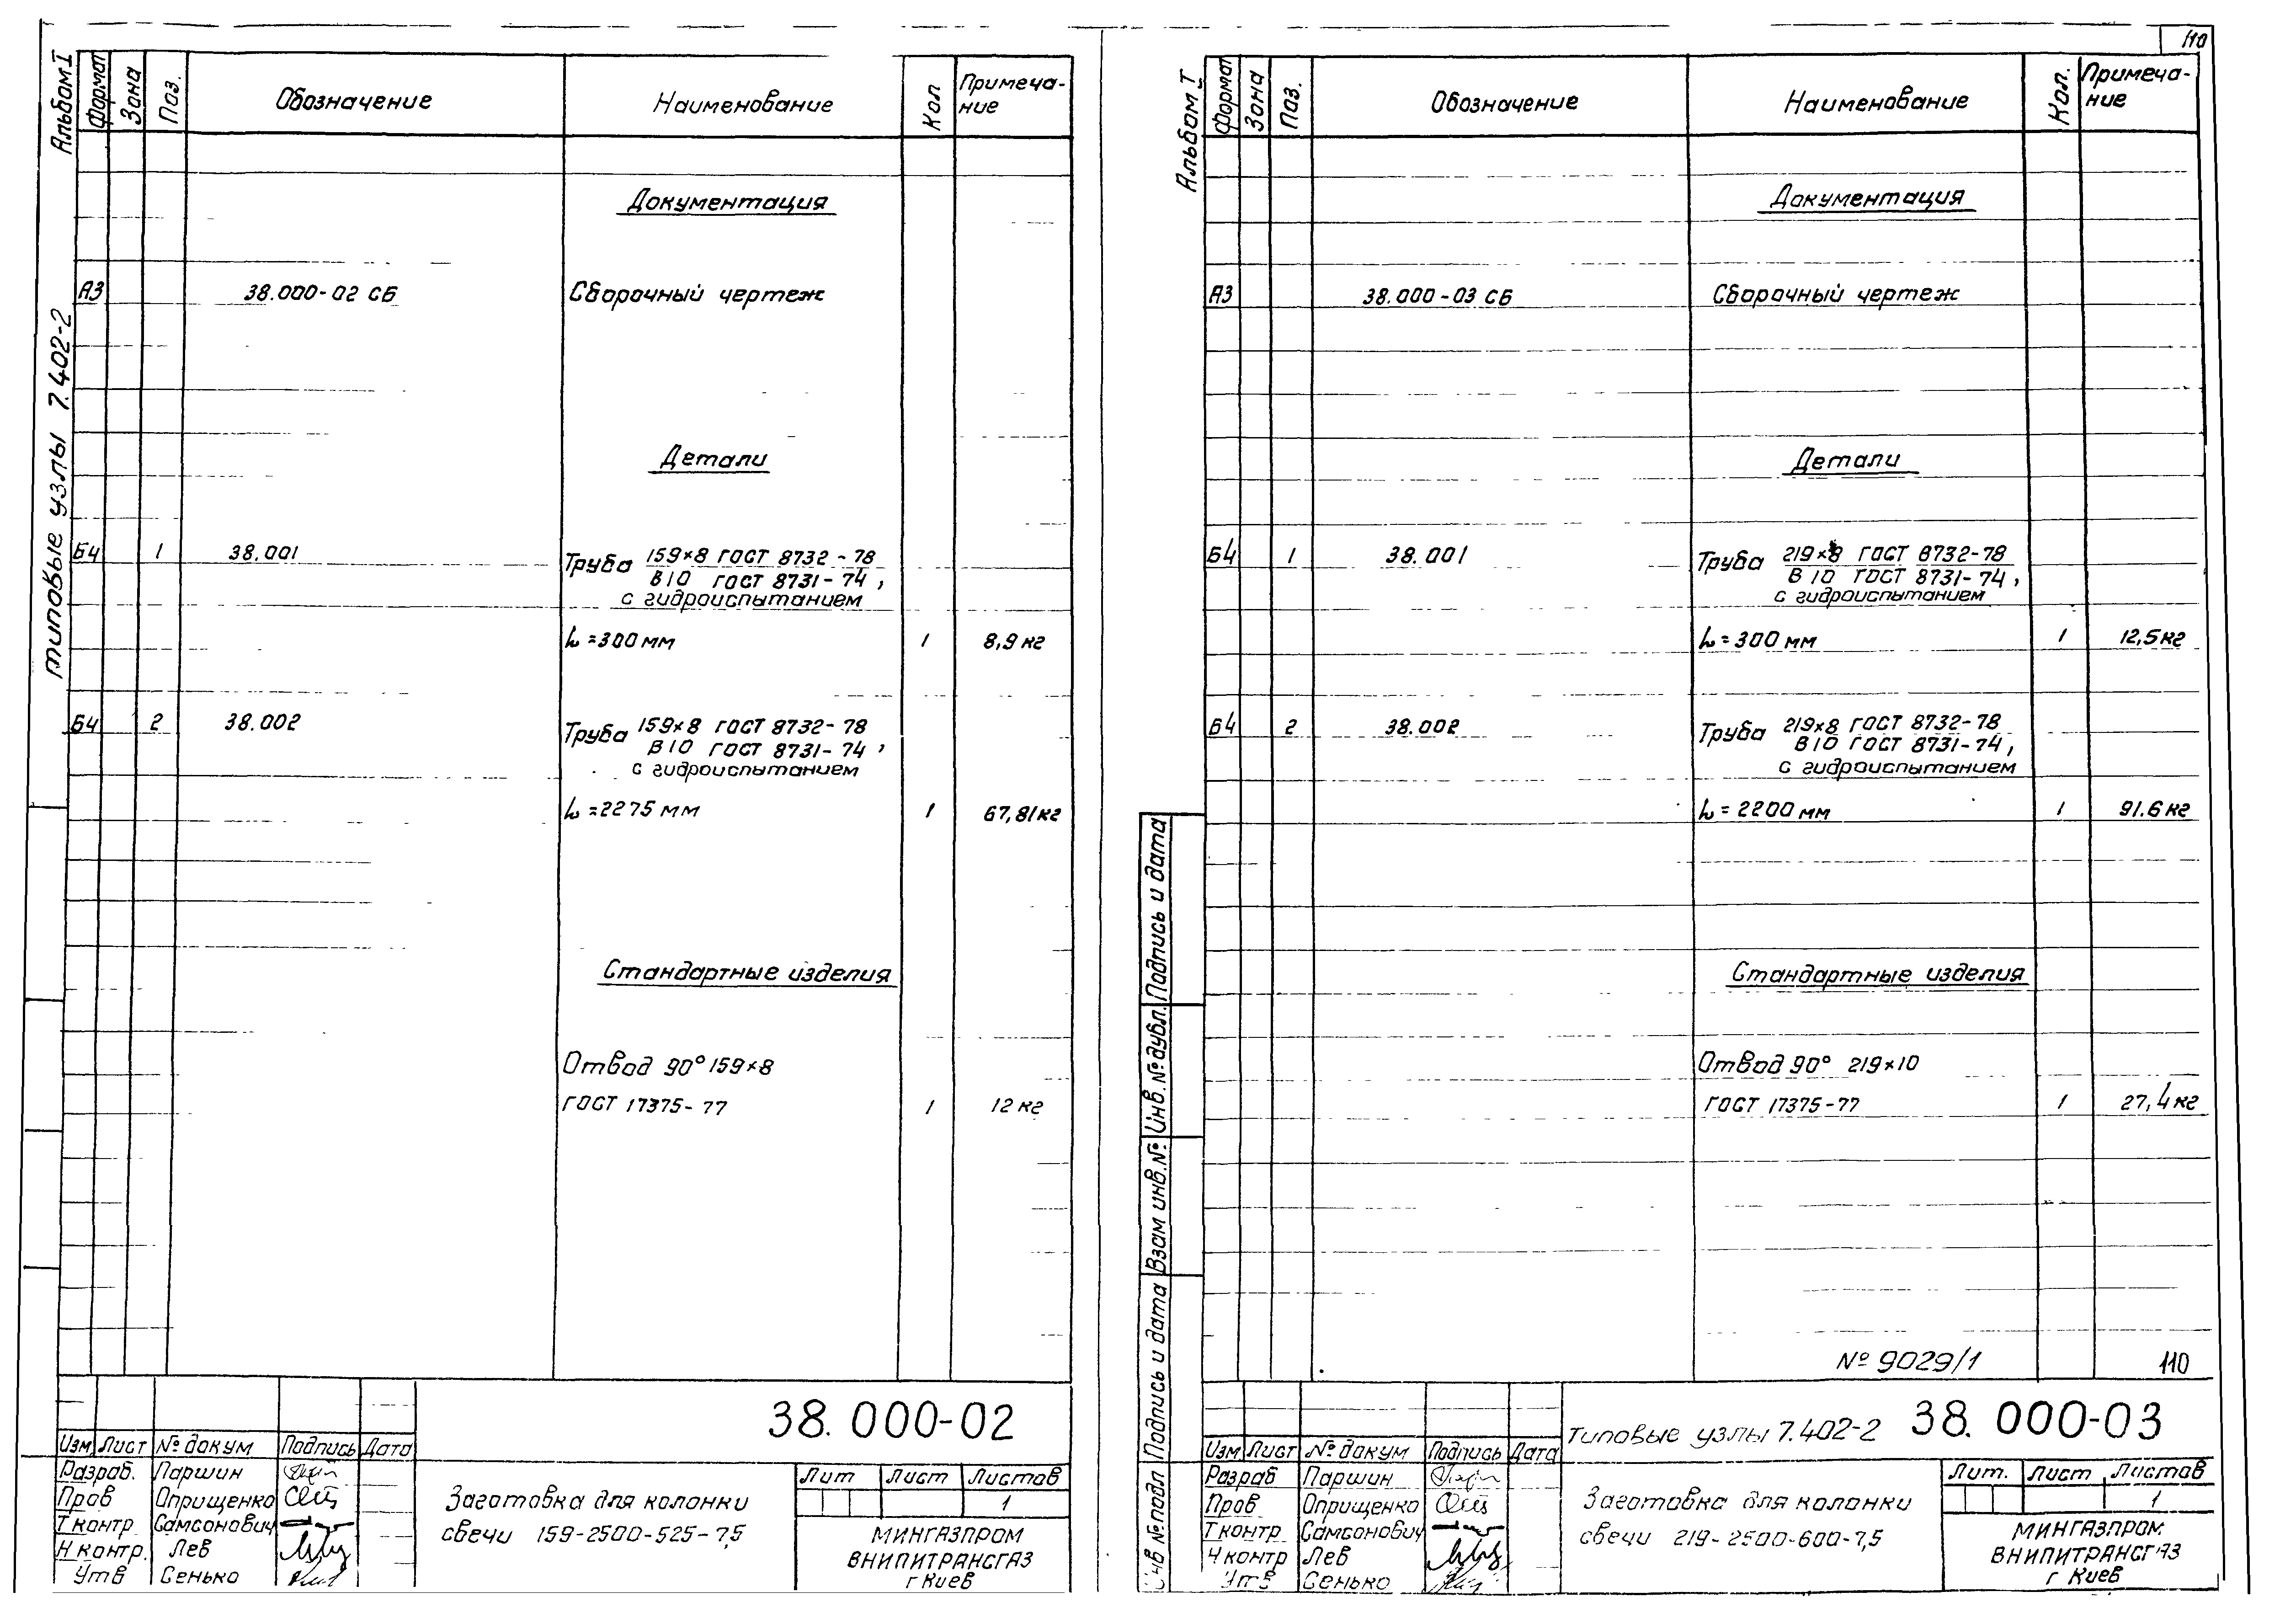 Альбом I
типовые узлы 7.402-2
Формат Зона Поз. Обозначение Наименование Кол Примеча-
ние
Документация
А3 38.000-02 СБ Сборочный чертеж
Детали
Б4 1 38.001 Труба 159×8 ГОСТ 8732-78
В10 ГОСТ 8731-74,
с гидроиспытанием
L=300 мм 1 8,9 кг
Б4 2 38.002 Труба 159×8 ГОСТ 8732-78
В10 ГОСТ 8731-74,
с гидроиспытанием
L=2275 мм 1 67,81 кг
Стандартные изделия
Отвод 90° 159×8
ГОСТ 17375-77 1 12 кг
38.000-02
Изм Лист № докум Подпись Дата
Разраб. Паршин
Пров Оприщенко
Т контр Самсонович
Н контр. Лев
Утв Сенько
Заготовка для колонки
свечи 159-2500-525-7,5
Лит Лист Листов
1
МИНГАЗПРОМ
ВНИПИТРАНСГАЗ
г Киев
110
Альбом I
Формат Зона Поз. Обозначение Наименование Кол. Примеча-
ние
Документация
А3 38.000-03 СБ Сборочный чертеж
Детали
Б4 1 38.001 Труба 219×8 ГОСТ 8732-78
В10 ГОСТ 8731-74,
с гидроиспытанием
L=300 мм 1 12,5 кг
Б4 2 38.002 Труба 219×8 ГОСТ 8732-78
В10 ГОСТ 8731-74,
с гидроиспытанием
L=2200 мм 1 91.6 кг
Стандартные изделия
Отвод 90° 219×10
ГОСТ 17375-77 1 27,4 кг
№ 9029/1 110
Инв № подл Подпись и дата Взам инв. № Инв. № дубл. Подпись и дата
типовые узлы 7.402-2 38.000-03
Изм Лист № докум Подпись Дата
Разраб Паршин
Пров Оприщенко
Т контр Самсонович
Н контр Лев
Утв Сенько
Заготовка для колонки
свечи 219-2500-600-7,5
Лит. Лист Листов
1
МИНГАЗПРОМ
ВНИПИТРАНСГАЗ
г Киев